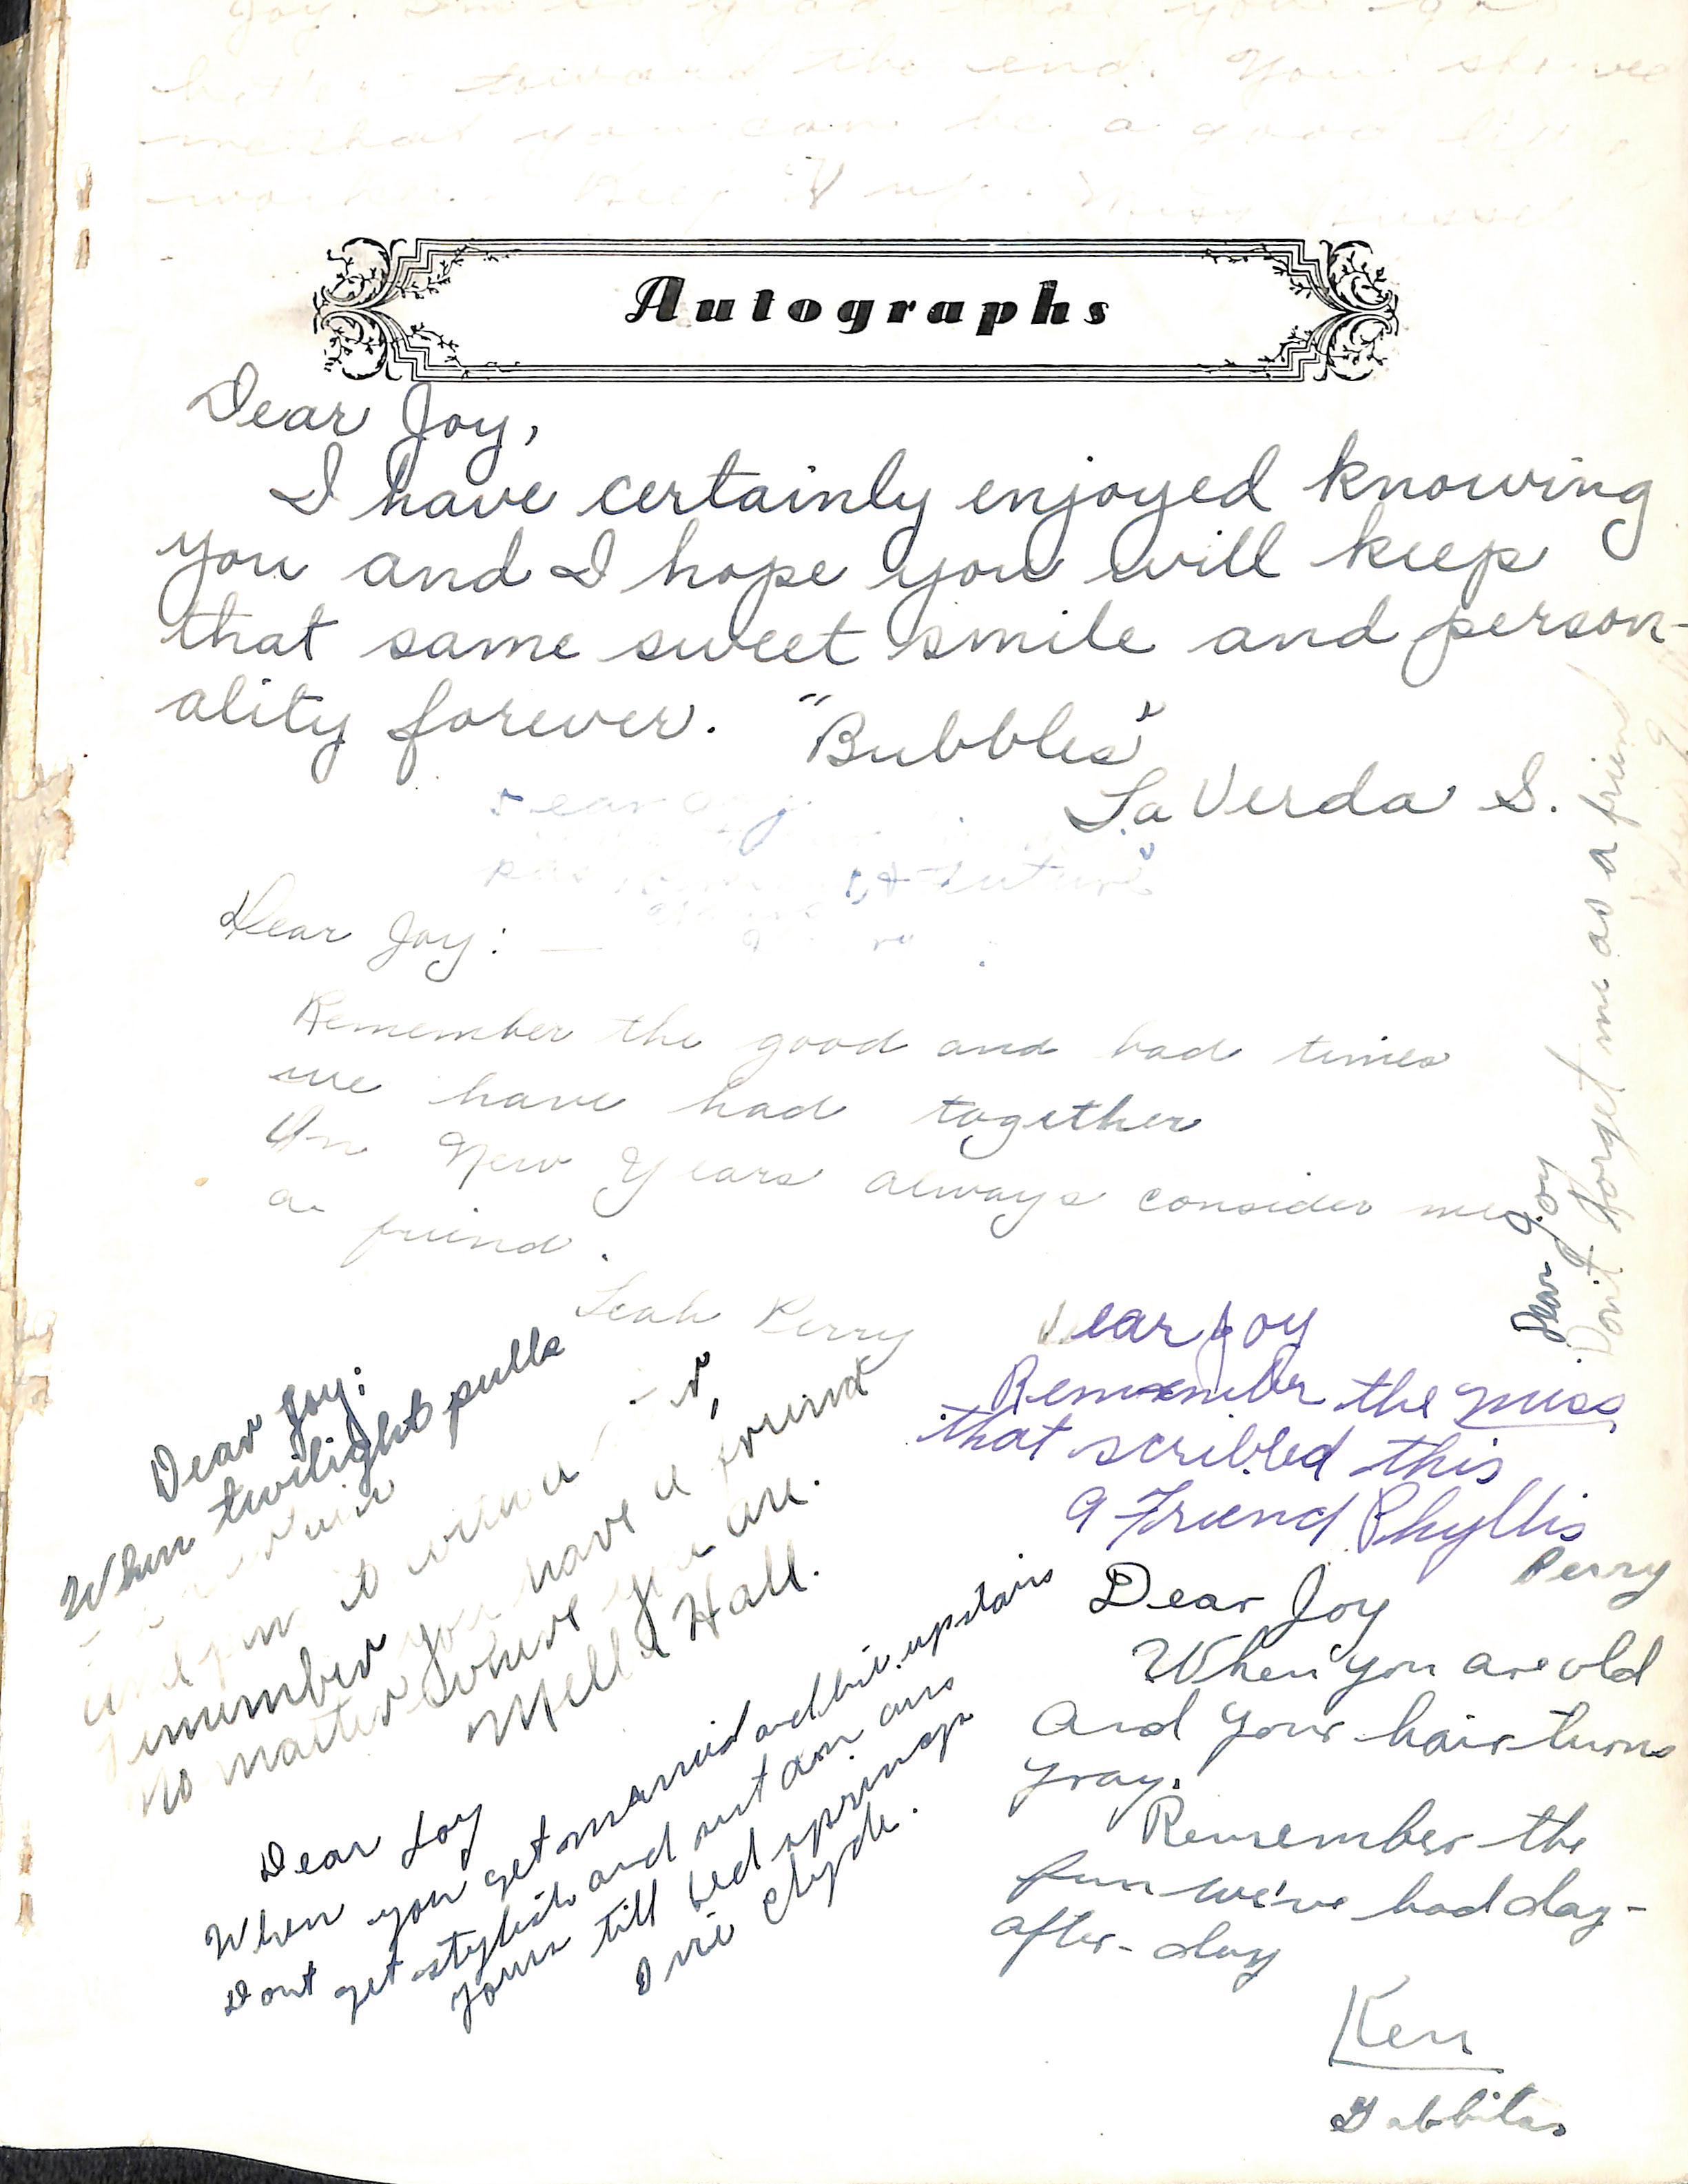 toward the end. You
me that you can be a good
Keep it up. Miss
Autographs
Dear Joy,
I have certainly enjoyed knowing
you and I hope you will keep
that same sweet smile and person-
ality forever. "Bubbles"
La Verda S.
future
Dear Joy: —
Remember the good and bad times
we have had together
In New Years always consider me
a friend.
Leah Perry
Dear Joy
Don't forget me as a friend
Dear Joy
Remember the miss
that scribbled this
A Friend Phyllis
Perry
Dear Joy:
When twilight pulls
and pins it with a
remember you have a friend
no matter where you are.
Mella Hall.
Dear Joy
When you get married and live upstairs
Dont get stylish and put on airs
Yours till bed springs
Clyde.
Dear Joy
When you are old
And your hair turns
gray.
Remember the
fun we've had day-
after-day
Ken
Gabbitas